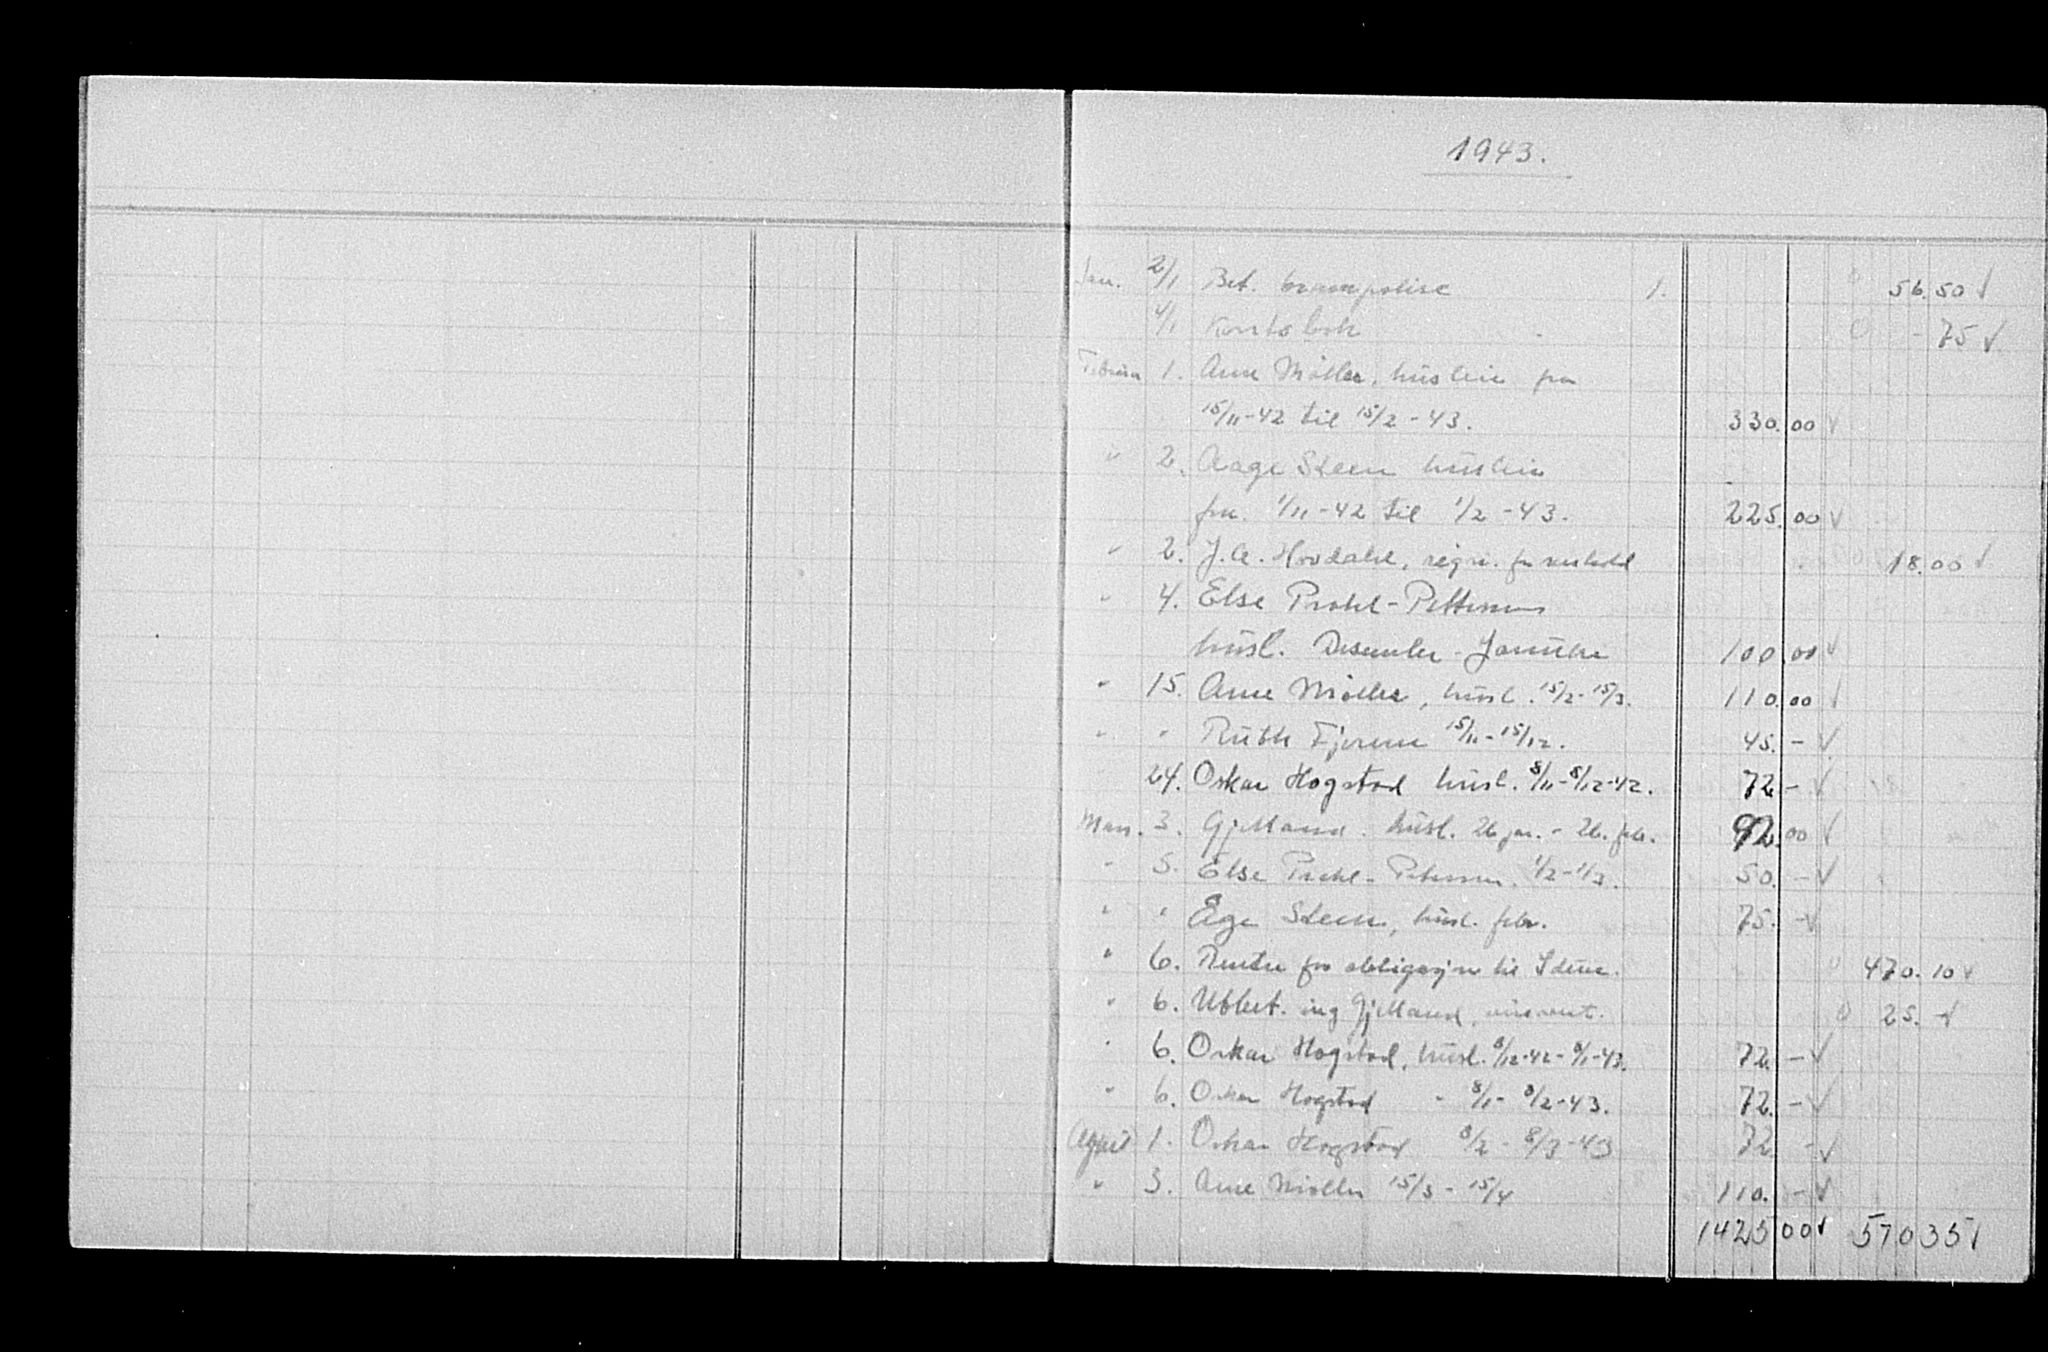 1943.
Jan. 2/1 Bet. brannpolise 1. 56.50 √
4/1 Kontobok - - 75 √
Februar 1. Arne Møller, husleie fra
15/11-42 til 15/2-43. 330.00 √
" 2. Aage Steen husleie
fra. 1/11-42 til 1/2-43. 225.00 √
" 2. J. A. Hovdahl, regn. for 18.00 √
" 4. Else Prahl-Pettersen
husl. Desember-Januar 100.00 √
" 15. Arne Møller, husl. 15/2-15/3. 110.00 √
" " Ruth 15/11-15/12. 45.- √
24. Oskar Hogstad husl. 8/11-8/12-42. 72.- √
Mars. 3. Gjelland. husl. 26 jan. - 26. feb. 92.00 √
" 5. Else Prahl-Petersen. 1/2-1/3. 50.- √
" " Åge Steen, husl. febr. 75.- √
" 6. Renter fra obligasjon til 470.10 √
" 6. Utbet. ing Gjelland, 25. √
" 6. Oskar Hogstad, husl. 8/12-42-8/1-43. 72.- √
" 6. Oskar Hogstad - 8/1-8/2-43. 72.- √
April 1. Oskar Hogstad 8/2-8/3-43 72 - √
" 3. Arne Møller 15/3-15/4 110.- √
1425 00 √ 570 35 √